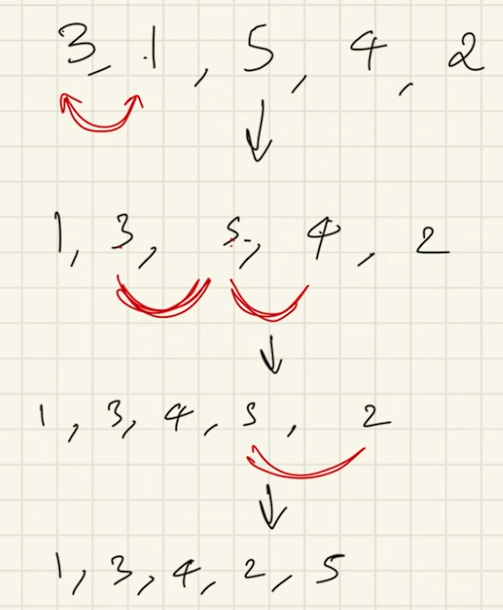 3, 1, 5, 4, 2
1, 3, 5, 4, 2
1, 3, 4, 5, 2
1, 3, 4, 2, 5